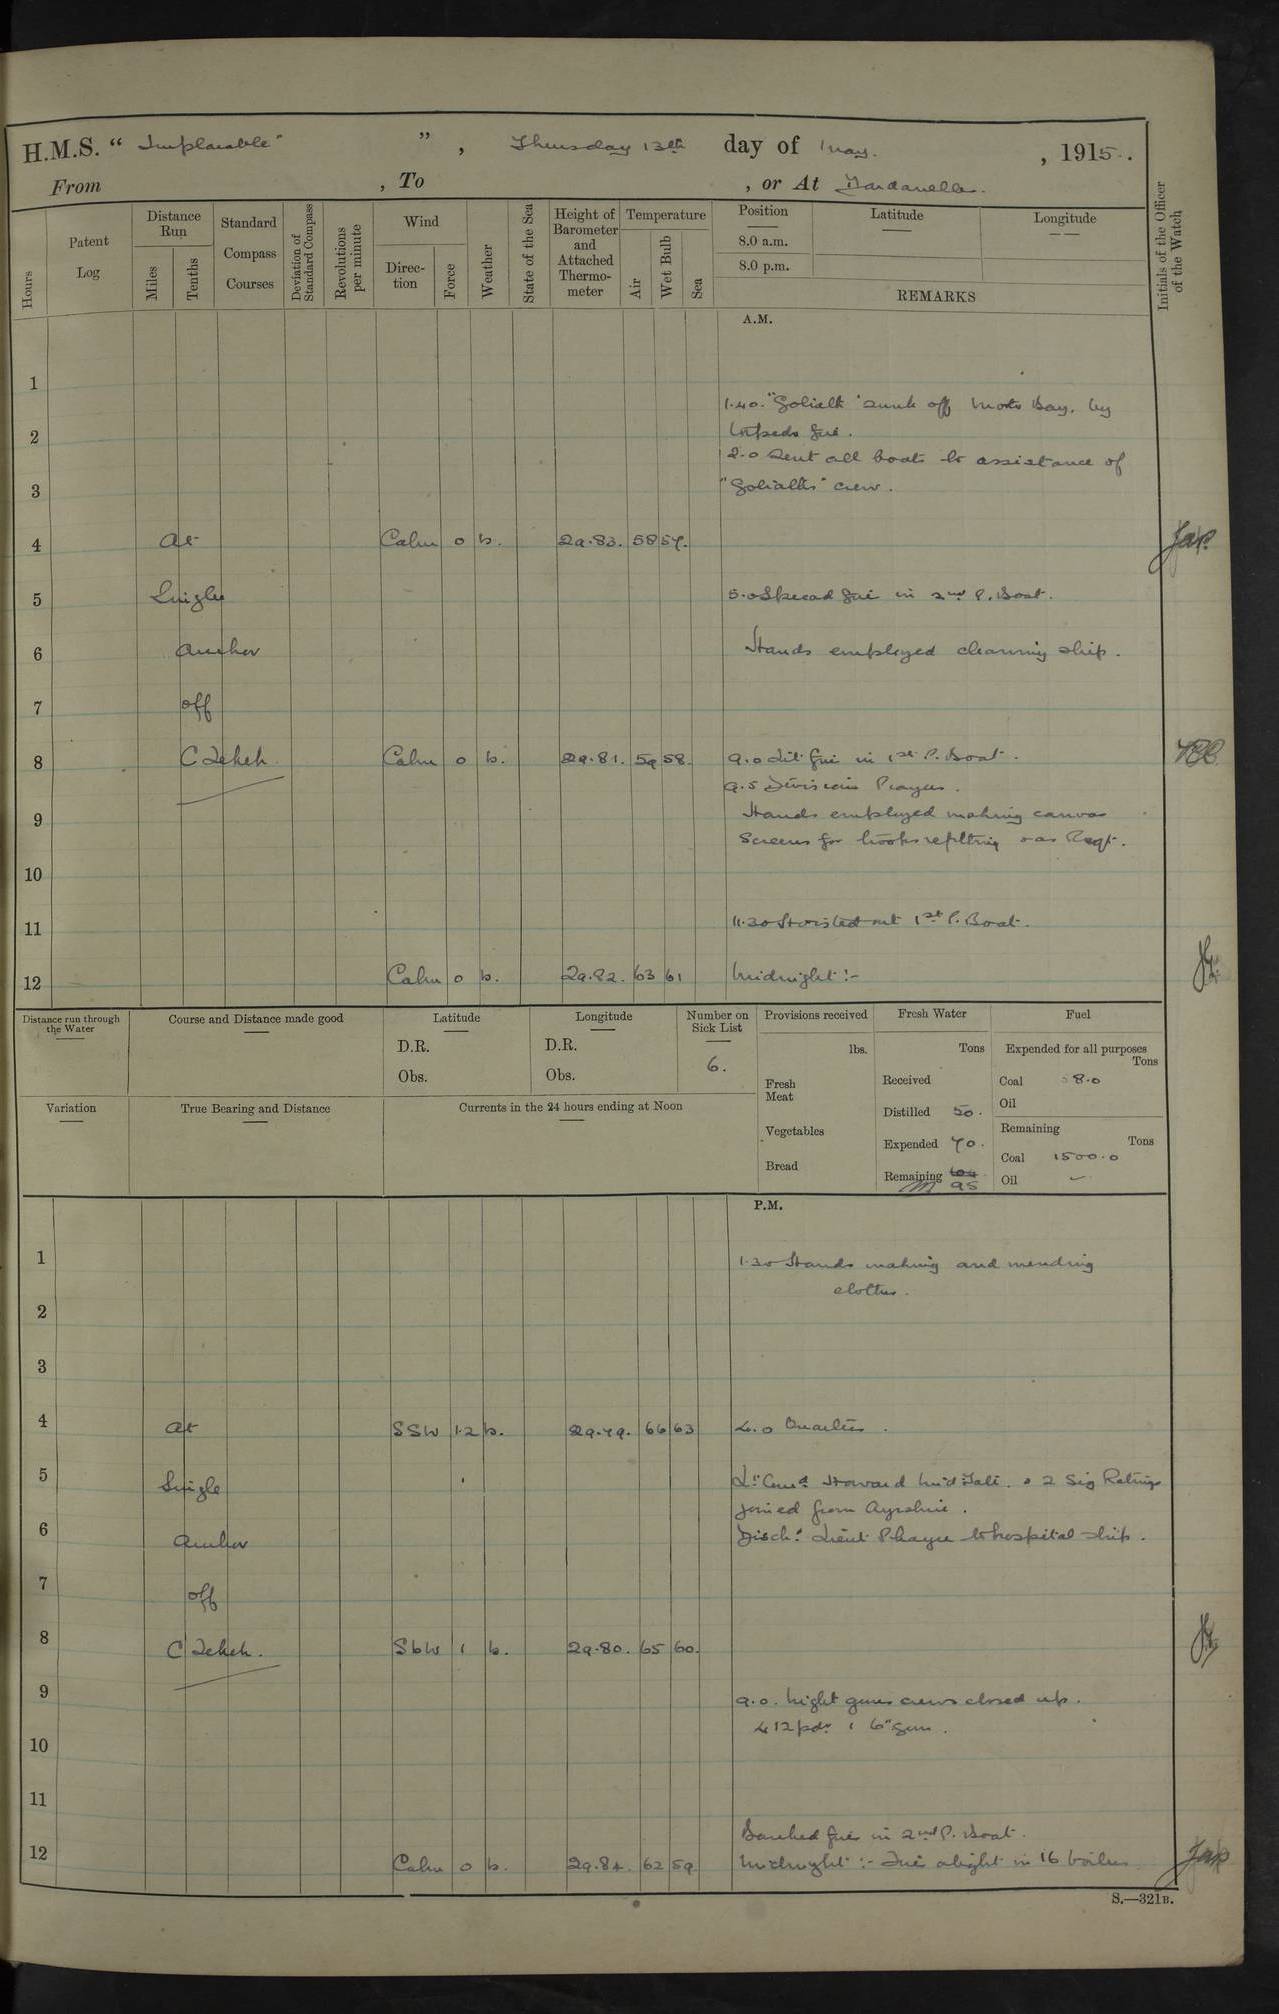 H.M.S. “ Implacable ” , Thursday 13th day of May. , 1915.
From , To , or At Dardanelles.
Hours
Patent Log
Distance Run
Miles
Tenths
Standard Compass Courses
Deviation of Standard Compass
Revolutions per minute
Wind
Direc-tion
Force
Weather
State of the Sea
Height of Barometer and Attached Thermo-meter
Temperature
Air
Wet Bulb
Sea
Position
8.0 a.m.
8.0 p.m.
Latitude
Longitude
REMARKS
Initials of the Officer of the Watch
A.M.
1
1.40. "Goliath" sunk off Morto Bay, by
2
torpedo fire.
2.0 Sent all boats to assistance of
3
"Goliaths" crew.
4 At Calm 0 b. 29.83. 58 57.
5 Single 5.0 Spread fire in 2nd P. Boat.
6 anchor Hands employed cleaning ship.
7 off
8 C Tekeh. Calm 0 b. 29.81. 59 58. 9.0 Lit fire in 1st P. Boat.
9.5 Divisions Prayers.
9 Hands employed making canvas
screens for hooks refitting & as Reqt.
10
11 11.30 Hoisted out 1st P. Boat.
12 Calm 0 b. 29.82. 63 61 Midnight :-
Distance run through the Water
Course and Distance made good
Latitude
D.R.
Obs.
Longitude
D.R.
Obs.
Number on Sick List
6.
Provisions received
lbs.
Fresh Meat
Vegetables
Bread
Fresh Water
Tons
Received
Distilled 50.
Expended 70.
Remaining 104 95
Fuel
Expended for all purposes
Tons
Coal 58.0
Oil
Remaining
Tons
Coal 1500.0
Oil
Variation
True Bearing and Distance
Currents in the 24 hours ending at Noon
P.M.
1 1.30 Hands making and mending
clothes.
2
3
4 At SSW 1.2 b. 29.79. 66 63 4.0 Quarters.
5 Single Lt. Comd. Howard Mid Tate. & 2 Sig Ratings
joined from Ayrshire.
6 anchor Disch. Lieut Phayre to hospital ship.
7 off
8 C Tekeh. SbW 1 b. 29.80. 65 60.
9 9.0. Night guns crews closed up.
4 12pdr 1 6" gun.
10
11
Banked fires in 2nd P. Boat.
12 Calm 0 b. 29.84. 62 59 Midnight :- Fires alight in 16 boilers
S.—321B.